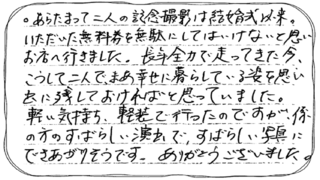 。あらたまって二人の記念撮影は結婚式以来。
いただいた無料券を無駄にしてはいけないと思い
お店へ行きました。長年全力で走ってきた今、
こうして二人で、まあ幸せに暮らしている姿を思い
出に残しておければと思っていました。
軽い気持ち、軽装で行ったのですが、係
の方のすばらしい演出で、すばらしい写真に
できあがりそうです。ありがとうございました。